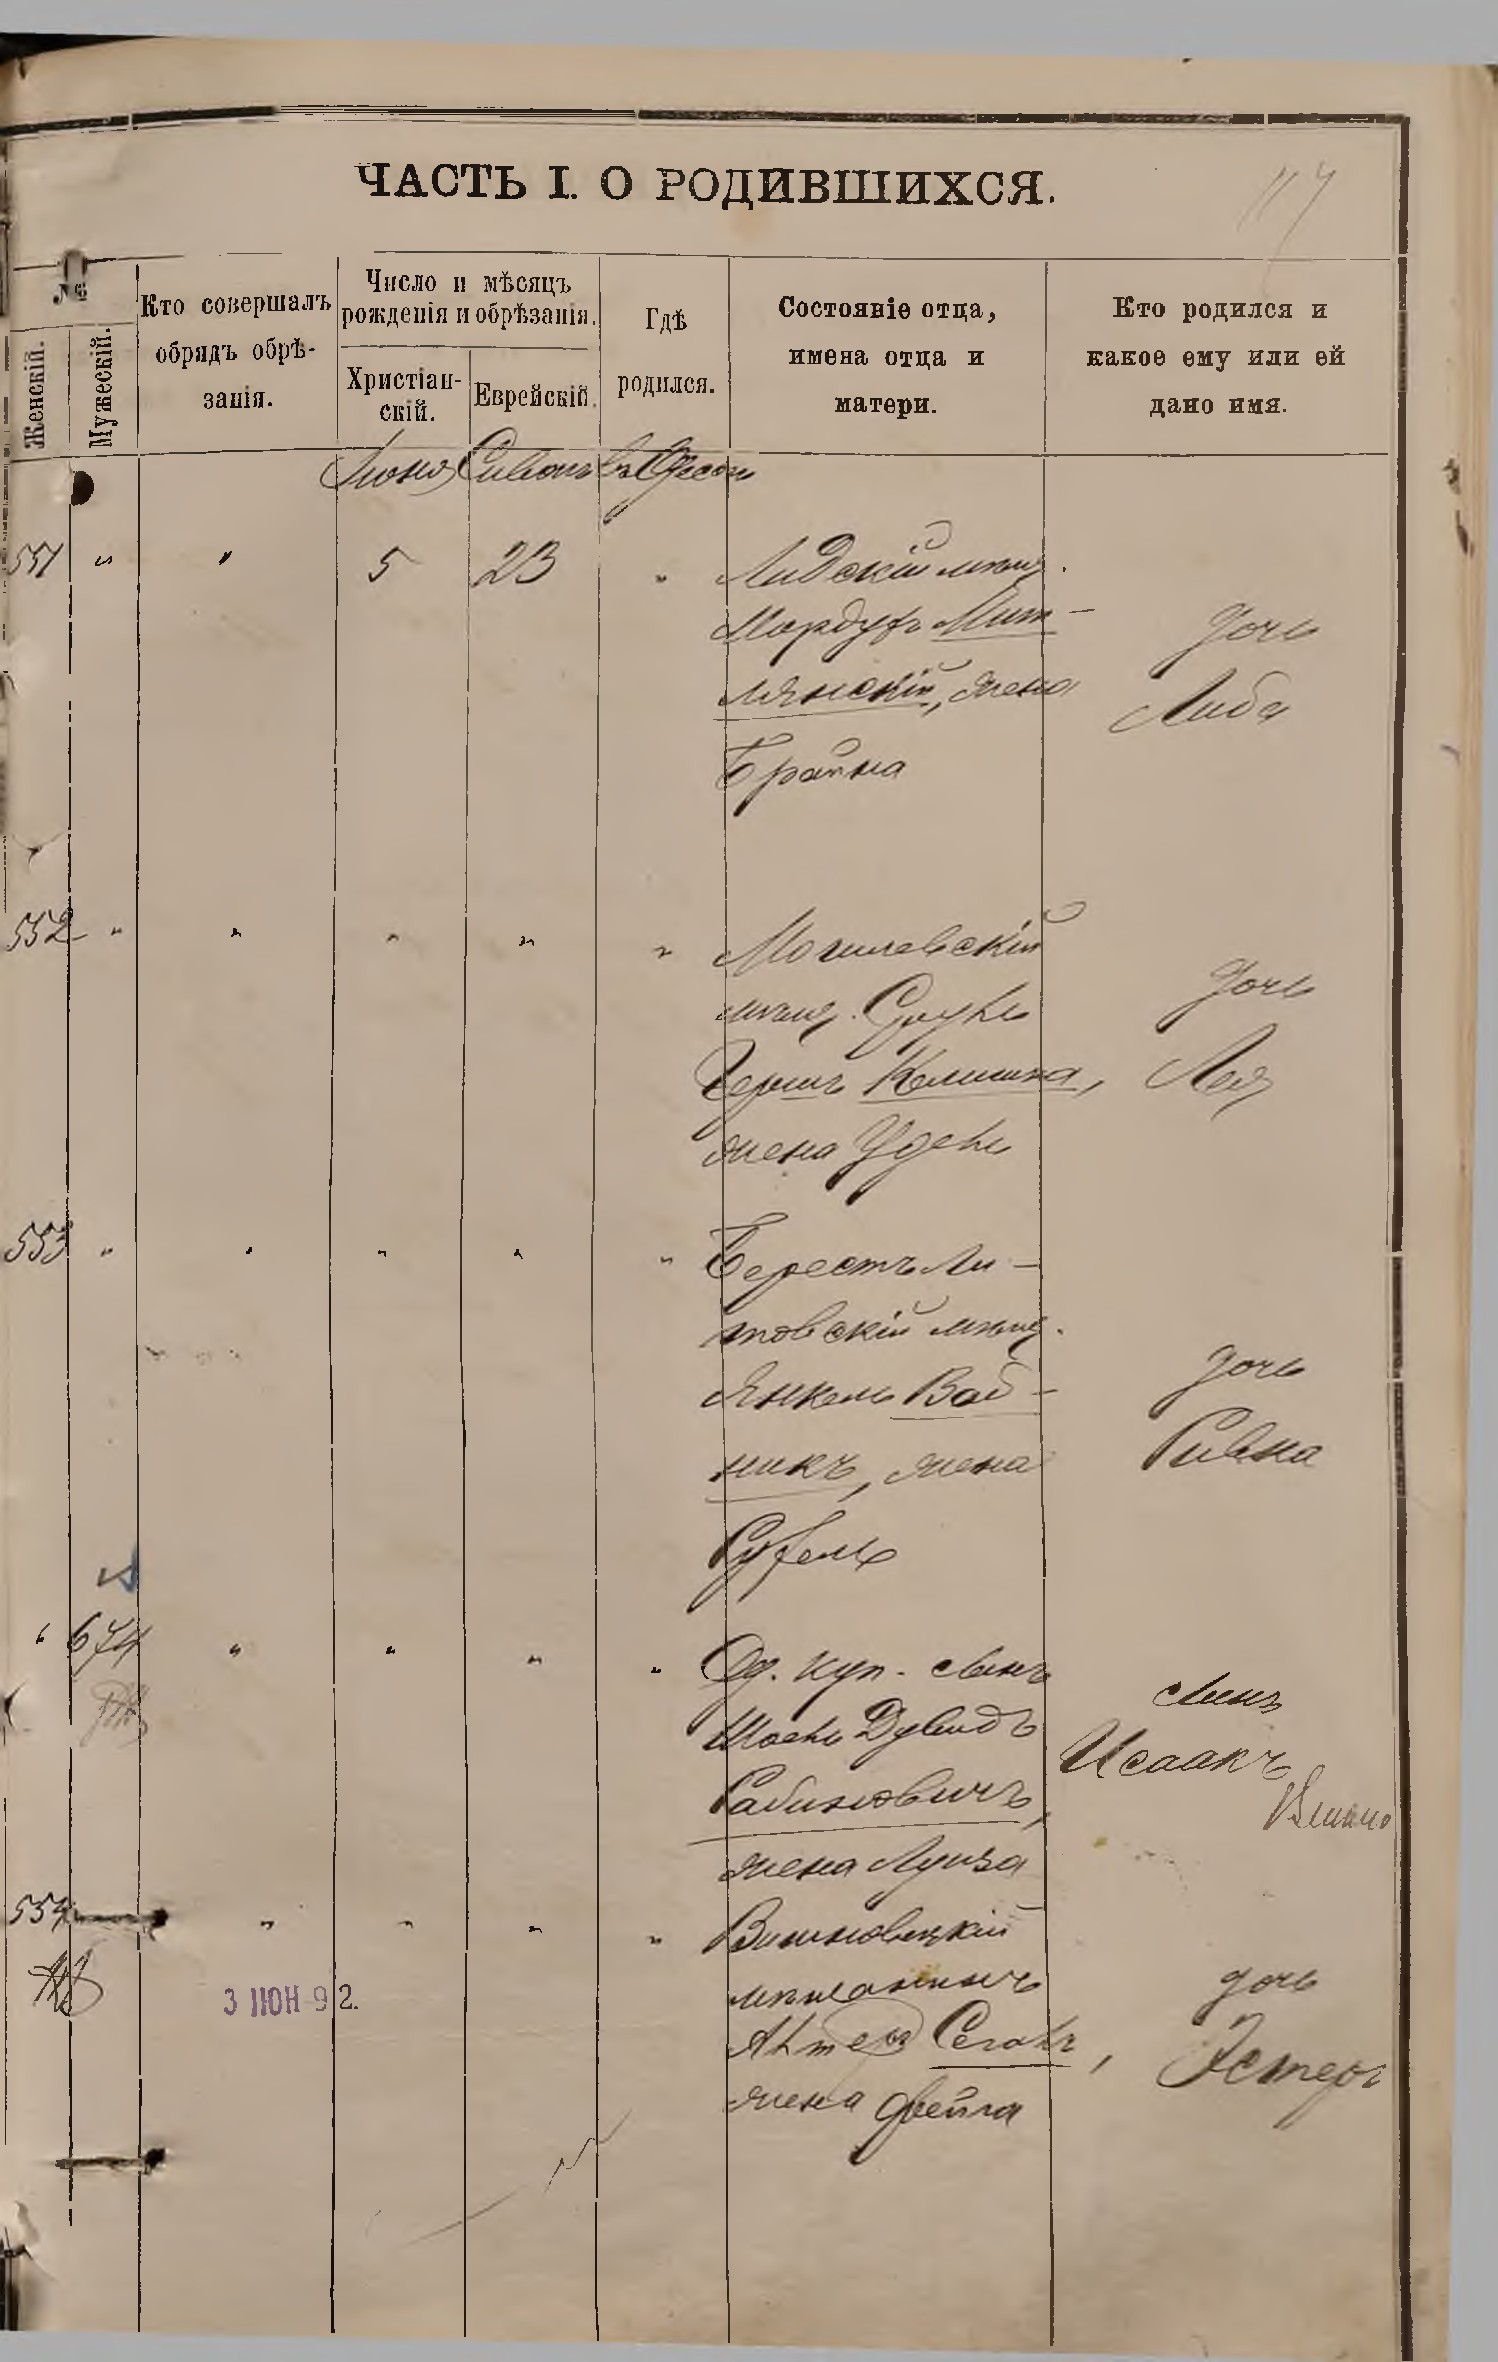 ЧАСТЬ I. О РОДИВШИХСЯ.
117
№
Женскій.
Мужескій.
Кто совершалъ
обрядъ обрѣ-
занія.
Число и мѣсяцъ
рожденія и обрѣзанія.
Христіан-
скій.
Еврейскій.
Гдѣ
родился.
Состояніе отца,
имена отца и
матери.
Кто родился и
какое ему или ей
дано имя.
Іюня Сивонъ въ Одессѣ
551 " " 5 23 " Лидскій мѣщ.
Мордухъ Мит-
лянскій, жена
Брайна
Дочь
Либа
552 " " " " " Могилевскій
мѣщ. Сруль
Гершъ Калишка,
жена Удель
Дочь
Лея
553 " " " " " Берестъ Ли-
товскій мѣщ.
Янкель Вай-
никъ, жена
Рухель
Дочь
Ривка
" 674 " " " " Од. куп. сынъ
Шаель Дувидъ
Рабиновичъ,
жена Луиза
сынъ
Исаакъ
554 " " " " Вишневецкій
мѣщанинъ
Сегаль,
жена Фейга
дочь
Эстеръ
3 ІЮН 92.